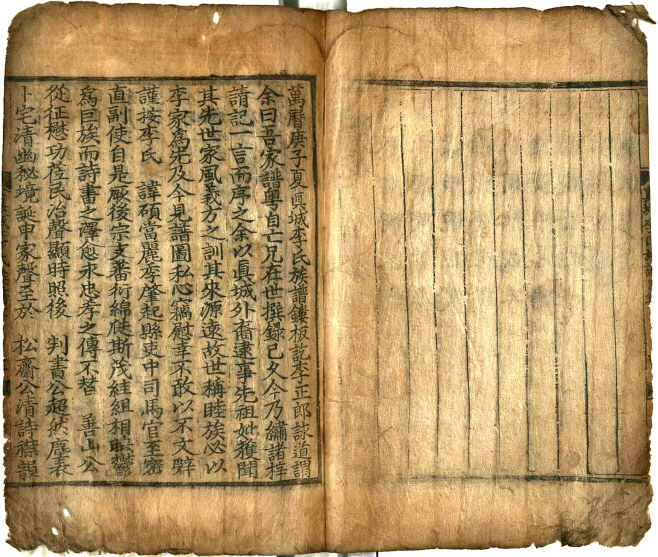 萬曆庚子夏眞城李氏族譜鏤板訖李正郎詠道謂
余曰吾家譜粤自亡兄在世撰錄已久今乃繡諸梓
請記一言而序之余以眞城外裔逮事先祖妣獲聞
其先世家風義方之訓其來源遠故世稱睦族必以
李家爲先及今見譜圖私心竊慰幸不敢以不文辭
謹按李氏 諱碩當麗季肇起縣吏中司馬官至密
直副使自是厥後宗支蕃衍綿庭斯茂珪組相聯鬱
爲巨族而詩書之澤愈永忠孝之傳不替 善山公
從征懋功莅民治聲顯時照後 判書公超然塵表
卜宅清幽秘境誕申家聲至於 松齋公清詩雅韻